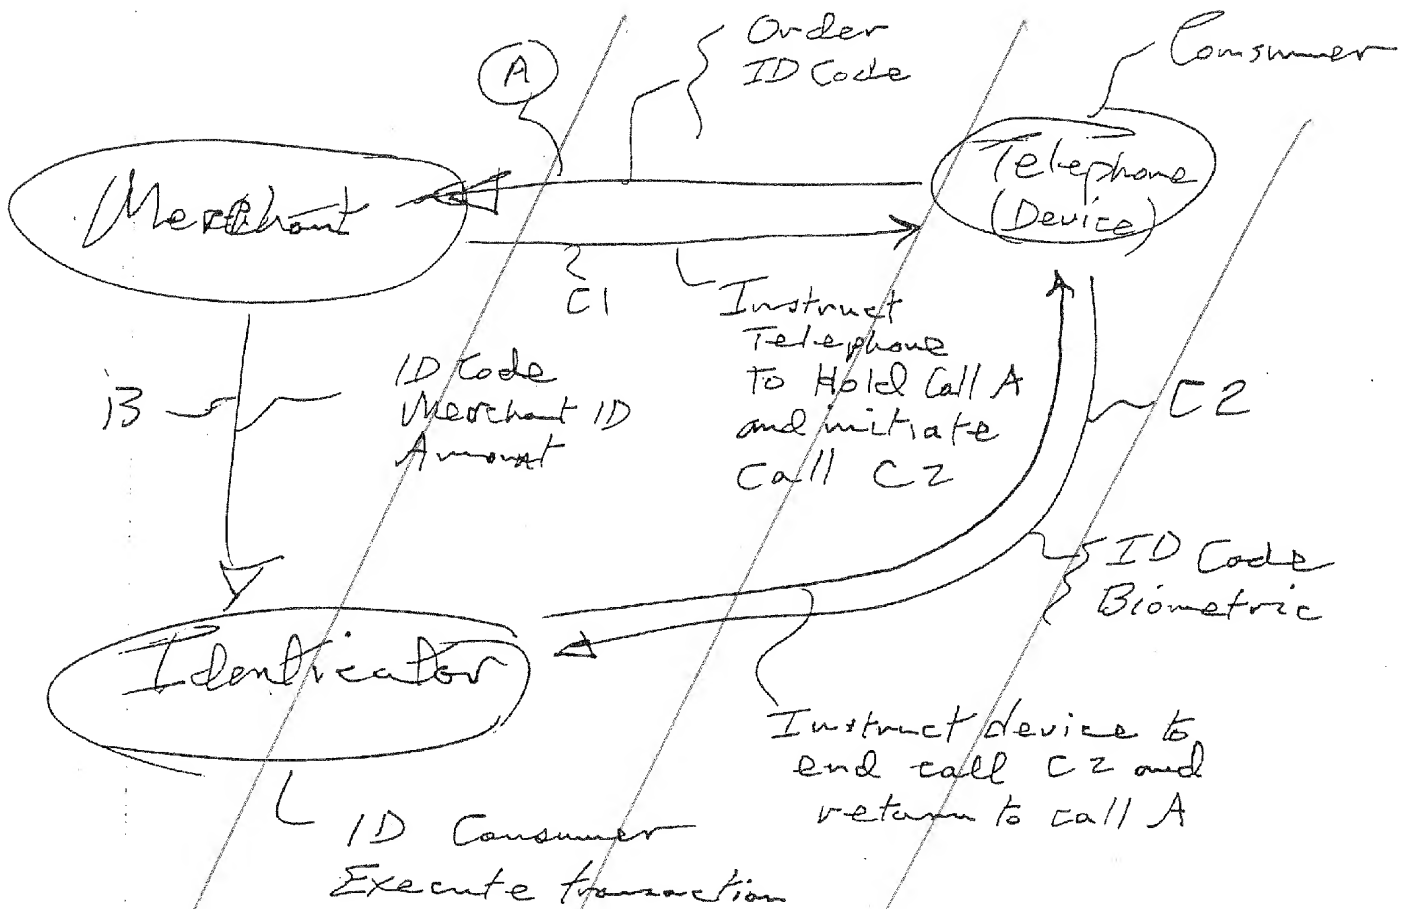 Order
ID Code
Consumer
A
Merchant
Telephone
(Device)
C1
Instruct
Telephone
to Hold Call A
and initiate
call C2
B
ID Code
Merchant ID
Amount
C2
ID Code
Biometric
Identicator
Instruct device to
end call C2 and
return to call A
ID Consumer
Execute transaction